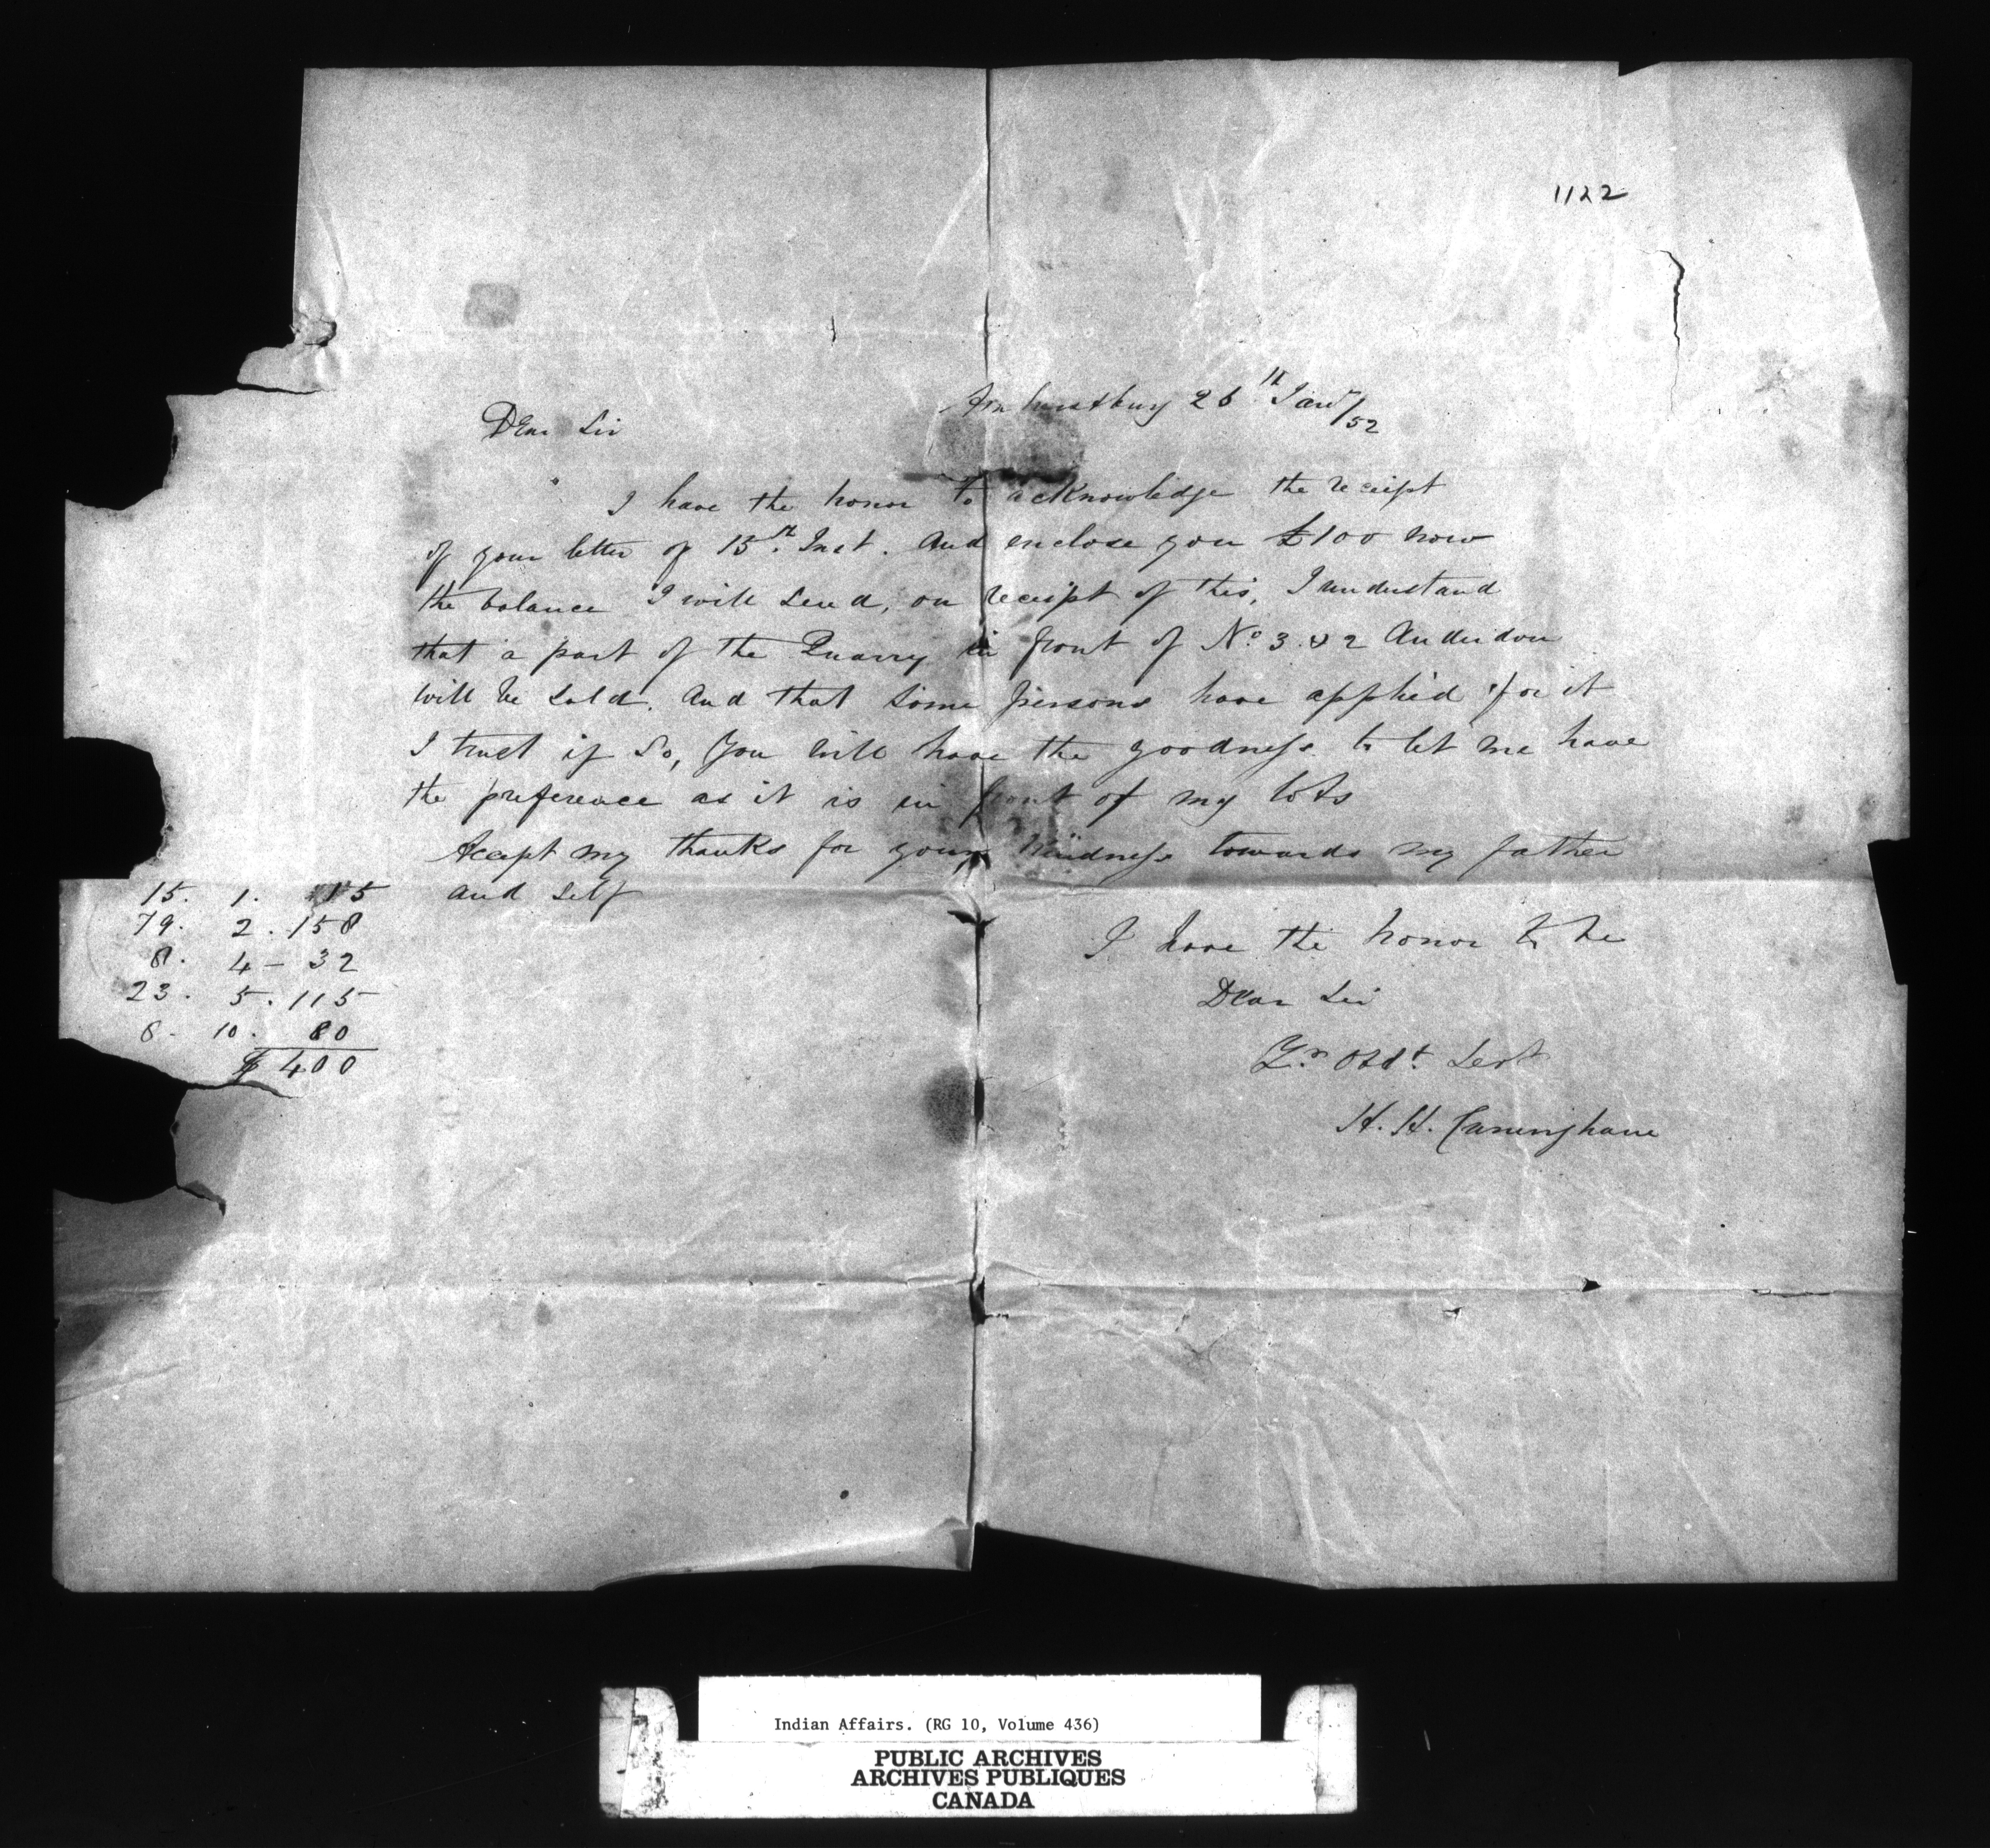 1122
Amherstburg 26th Jany/52
Dear Sir
I have the honor to acknowledge the receipt
of your letter of 15th Inst. And enclose you £100 now
the balance I will send, on receipt of this, I understand
that a part of the Quarry in front of No 3 & 2 Anderdon
will be sold. And that some persons have applied for it
I trust if so, you will have the goodness to let me have
the preference as it is in front of my lots
Accept my thanks for your kindness towards my father
and self
15. 1. 15
79. 2. 158
8. 4 - 32
23. 5. 115
8 - 10. 80
$ 400
I have the honor to be
Dear Sir
Yr Obdt Servt
H. H. Cuninghame
Indian Affairs. (RG 10, Volume 436)
PUBLIC ARCHIVES
ARCHIVES PUBLIQUES
CANADA